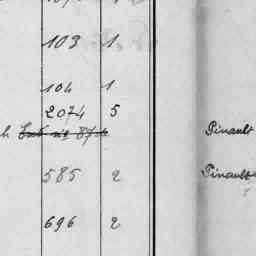 103 1
104 1
2074 5
Pinault
585 2 Pinault
696 2